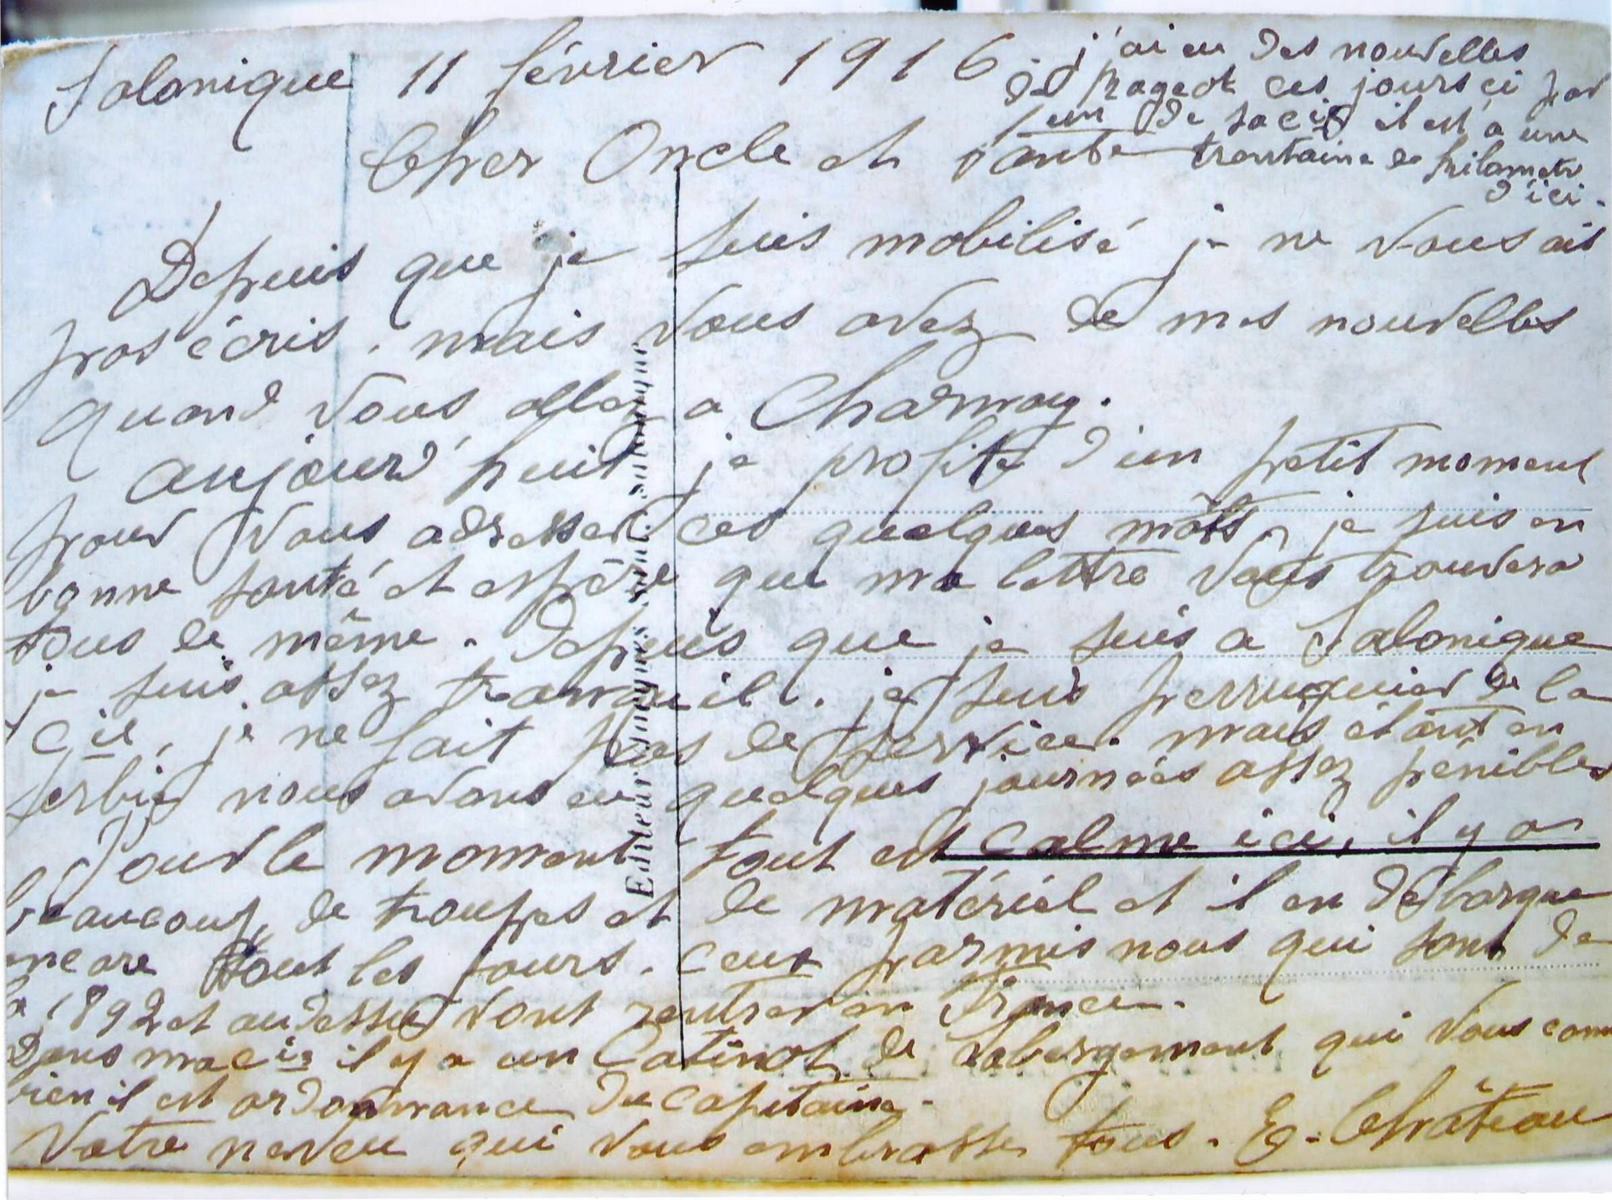 Salonique 11 février 1916
j'ai eu des nouvelles
de Pageot ces jours ci par
un de sa cie il est a une
trentaine de kilometre
d'ici.
Cher Oncle et Tante
Depuis que je suis mobilisé je ne vous ais
pas écris. mais vous avez de mes nouvelles
quand vous allez a Charmoy.
aujourd'huit je profite d'un petit moment
pour vous adresser ces quelques mots, je suis en
bonne santé et espère que ma lettre vous trouvera
tous de même. Depuis que je suis a Salonique
je suis assez tranquil. je suis perruquier de la
Cie, je ne fait pas de service. mais étant en
serbie nous avons eu quelques journées assez pénibles
Pour le moment tout est calme ici, il y a
beaucoup de troupes et de matériel et il en débarque
encore tout les jours. ceux parmis nous qui sont de
la 1892 et au dessus vont rentrer en France.
Dans ma cie il y a un Catinot de qui vous connait
bien il est ordonnance du capitaine.
Votre neveu qui vous embrasse tous. E. Château
Editeur